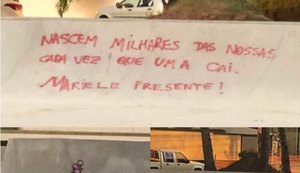 NASCEM MILHARES DAS NOSSAS
CADA VEZ QUE UMA CAI.
MARIELE PRESENTE!